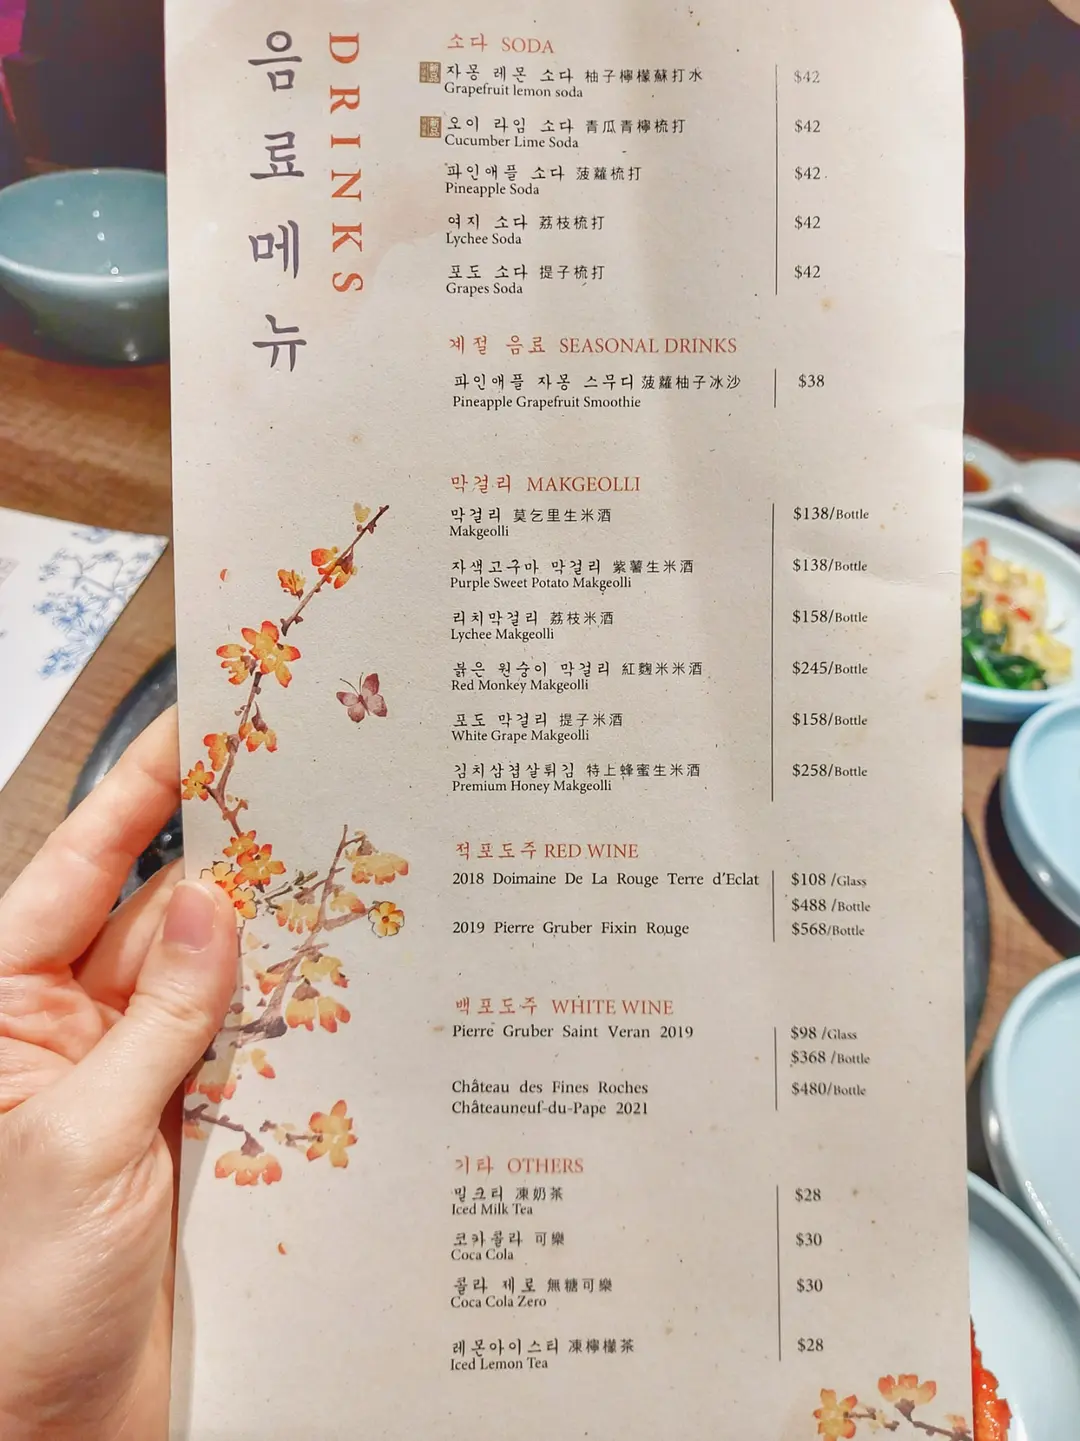 음료메뉴
DRINKS
소다 SODA
자몽 레몬 소다 柚子檸檬蘇打水 $42
Grapefruit lemon soda
오이 라임 소다 青瓜青檸梳打 $42
Cucumber Lime Soda
파인애플 소다 菠蘿梳打 $42
Pineapple Soda
여지 소다 荔枝梳打 $42
Lychee Soda
포도 소다 提子梳打 $42
Grapes Soda
계절 음료 SEASONAL DRINKS
파인애플 자몽 스무디 菠蘿柚子冰沙 $38
Pineapple Grapefruit Smoothie
막걸리 MAKGEOLLI
막걸리 莫乞里生米酒 $138/Bottle
Makgeolli
자색고구마 막걸리 紫薯生米酒 $138/Bottle
Purple Sweet Potato Makgeolli
리치막걸리 荔枝米酒 $158/Bottle
Lychee Makgeolli
붉은 원숭이 막걸리 紅麴米米酒 $245/Bottle
Red Monkey Makgeolli
포도 막걸리 提子米酒 $158/Bottle
White Grape Makgeolli
김치삼겹살튀김 特上蜂蜜生米酒 $258/Bottle
Premium Honey Makgeolli
적포도주 RED WINE
2018 Doimaine De La Rouge Terre d'Eclat $108 /Glass
$488 /Bottle
2019 Pierre Gruber Fixin Rouge $568/Bottle
백포도주 WHITE WINE
Pierre Gruber Saint Veran 2019 $98 /Glass
$368 /Bottle
Château des Fines Roches $480/Bottle
Châteauneuf-du-Pape 2021
기타 OTHERS
밀크티 凍奶茶 $28
Iced Milk Tea
코카콜라 可樂 $30
Coca Cola
콜라 제로 無糖可樂 $30
Coca Cola Zero
레몬아이스티 凍檸檬茶 $28
Iced Lemon Tea